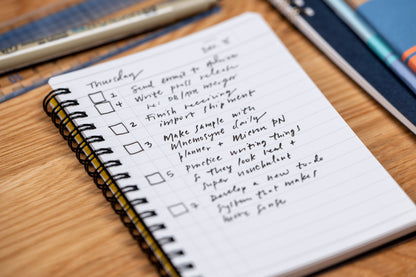 Thursday
1 Send email to
4 Write press release
re: merger
2 Finish receiving
import shipment
3 Make sample with
Mnemosyne daily
planner + Micron PN
5 Practice writing things
so they look neat +
super nonchalant
7 Develop a new to-do
system that makes
sense